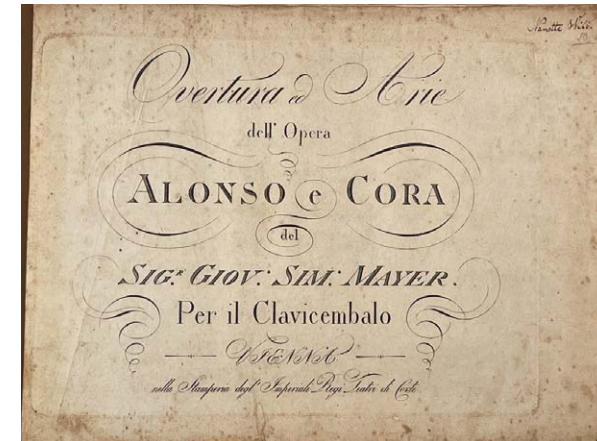 Nanette
Overtura ed Arie
dell' Opera
ALONSO e CORA
del
SIG.R GIOV. SIM. MAYER.
Per il Clavicembalo
VIENNA
nella Stamperia degl' Imperiali Regi Teatri di Corte